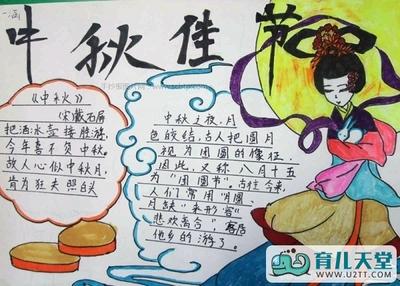 中秋佳节
《中秋》
(宋)戴石屏
把酒冰壶接胜游，
今年喜不负中秋。
故人心似中秋月，
肯为狂夫照白头
中秋之夜,月
色皎结,古人把圆月
视为团圆的像征,
因此,又称八月十五
为“团圆节”。古往今来,
人们常用“月圆、
月缺”来形容“
悲欢离合”,客居
他乡的游子,
育儿天堂
www.U2TT.com